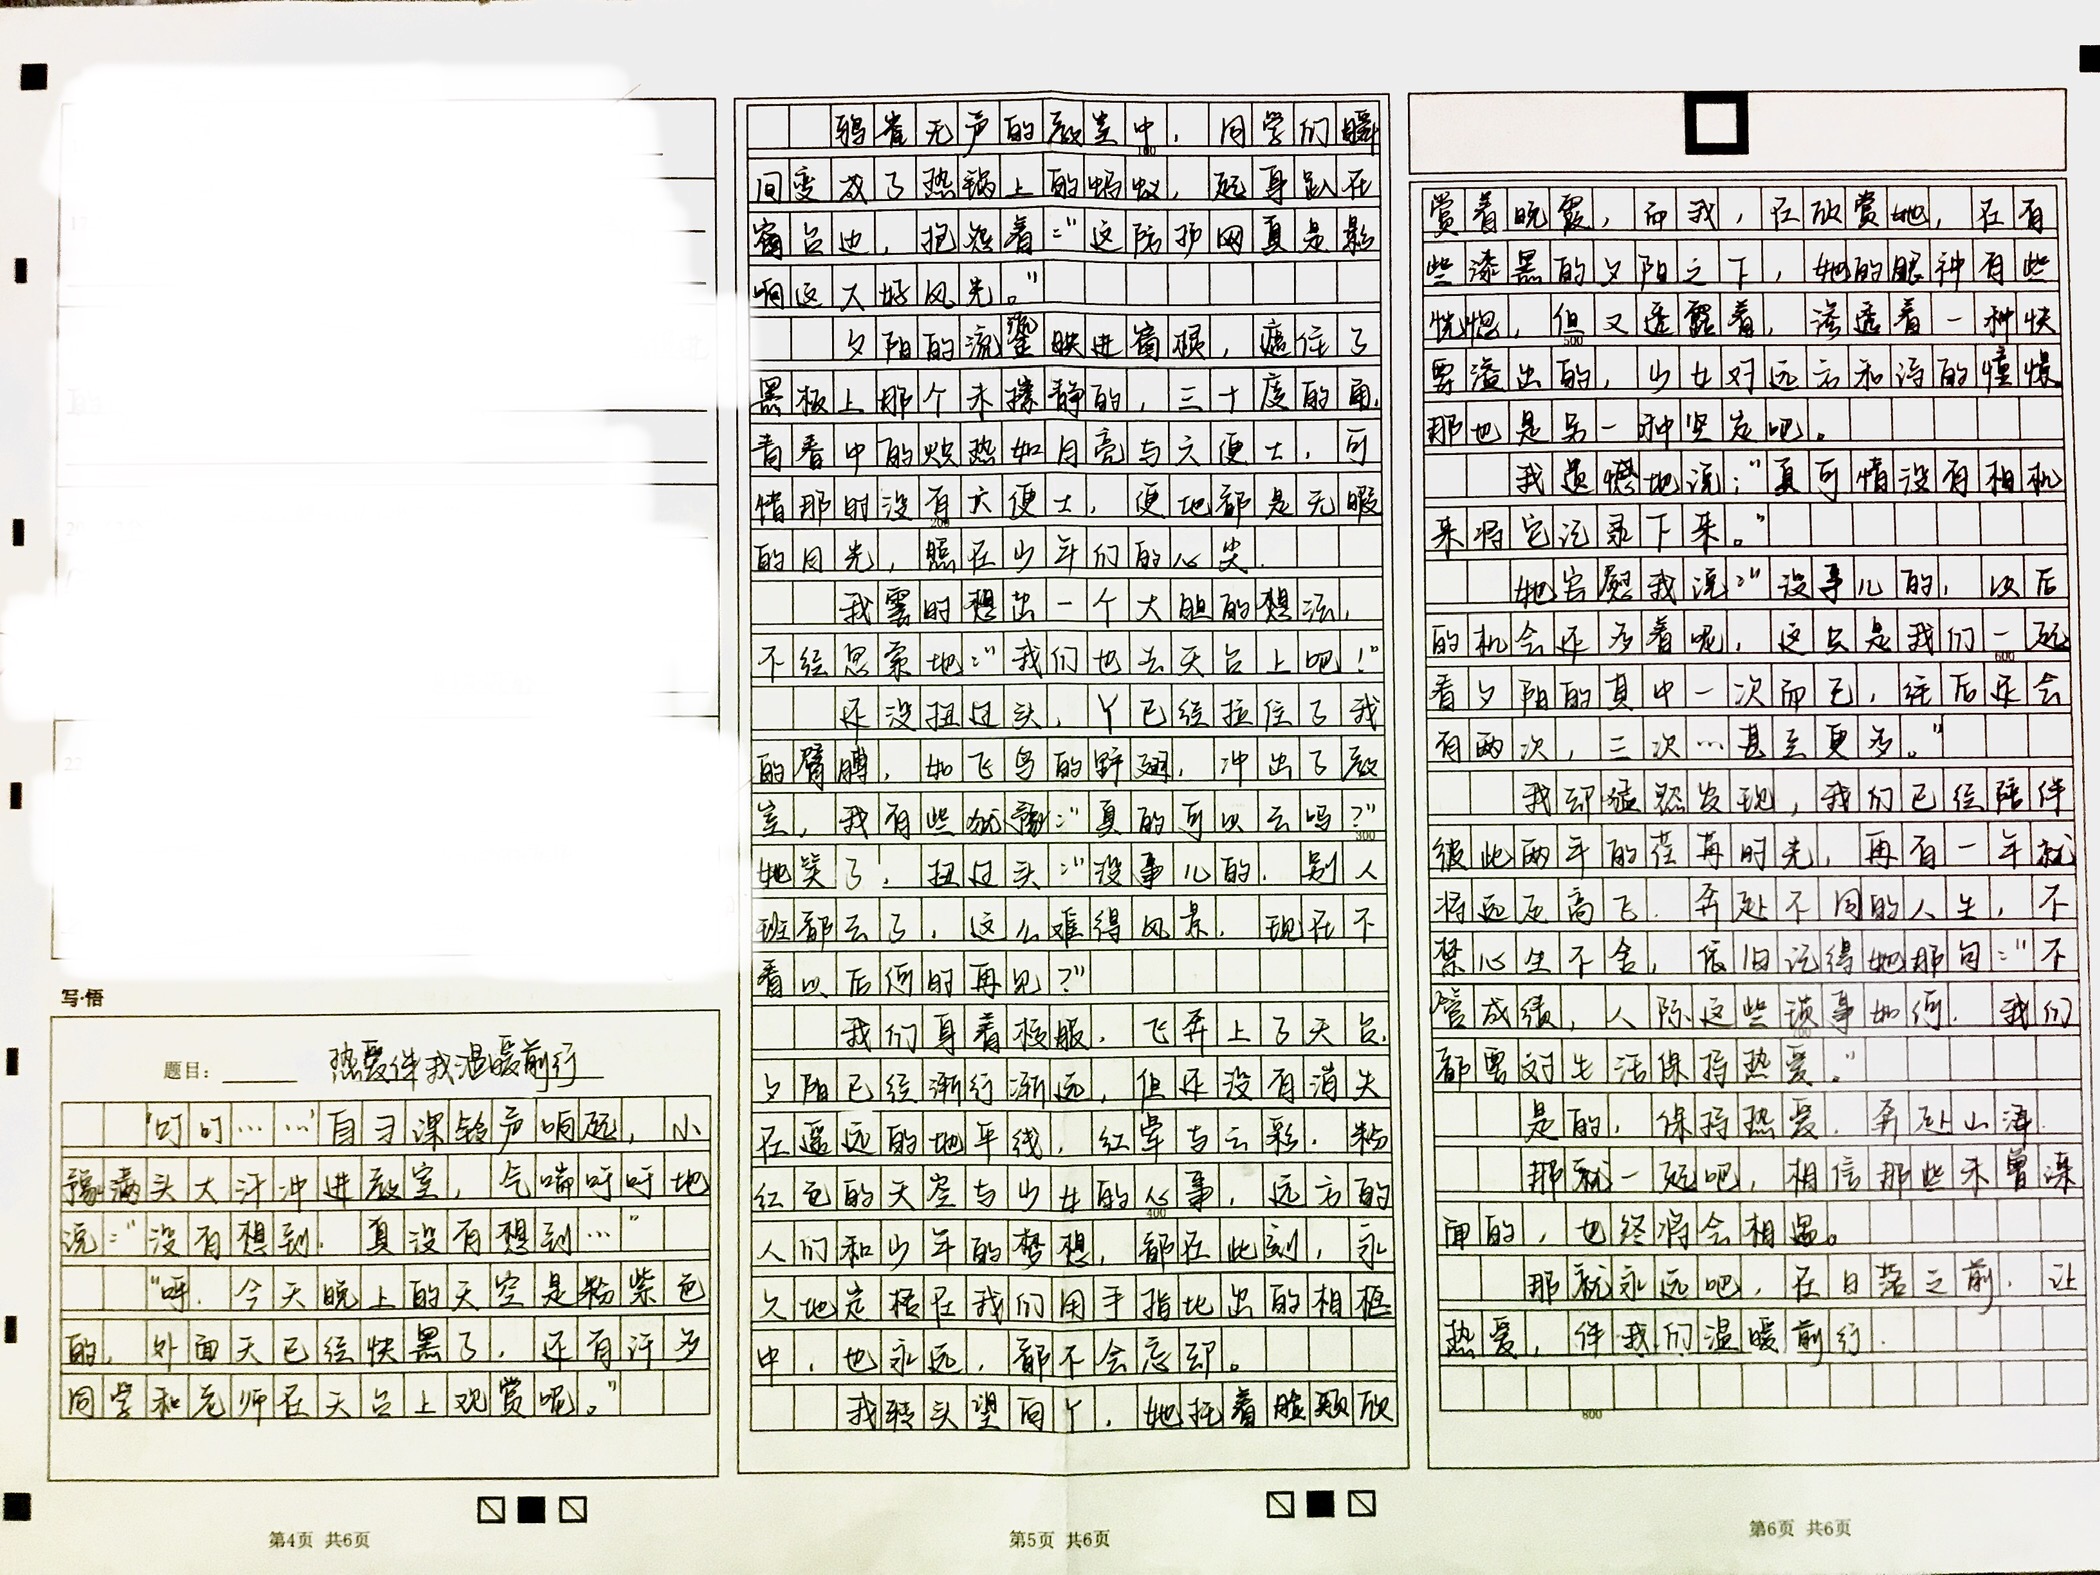 写·悟
题目：热爱伴我温暖前行
“叮叮……”自习课铃声响起，小
豫满头大汗冲进教室，气喘吁吁地
说：“没有想到，真没有想到…”
“呼，今天晚上的天空是粉紫色
的，外面天已经快黑了，还有许多
同学和老师在天台上观赏呢。”
第4页 共6页
鸦雀无声的教室中，同学们瞬
100
间变成了热锅上的蚂蚁，起身趴在
窗台边，抱怨着：“这防护网真是影
响这大好风光。”
夕阳的流鎏映进窗棂，遮住了
黑板上那个未擦静的，三十度的角，
青春中的炽热如月亮与六便士，可
惜那时没有六便士，便地都是无暇
200
的月光，照在少年们的心尖.
我霎时想出一个大胆的想法，
不经思索地：“我们也去天台上吧！”
还没扭过头，丫已经拉住了我
的臂膊，如飞鸟的野翅，冲出了教
室，我有些犹豫：“真的可以去吗？”
300
她笑了，扭过头：“没事儿的，别人
班都去了，这么难得风景，现在不
看以后何时再见？”
我们身着校服，飞奔上了天台，
夕阳已经渐行渐远，但还没有消失
在遥远的地平线，红晕与云彩，粉
红色的天空与少女的心事，远方的
400
人们和少年的梦想，都在此刻，永
久地定格在我们用手指比出的相框
中，也永远，都不会忘却。
我转头望向丫，她托着脸颊欣
第5页 共6页
赏着晚霞，而我，在欣赏她，在有
些漆黑的夕阳之下，她的眼神有些
恍惚，但又透露着，渗透着一种快
500
要溢出的，少女对远方和诗的憧憬
那也是另一种坚定吧。
我遗憾地说：“真可惜没有相机
来将它记录下来。”
她安慰我说：“没事儿的，以后
的机会还多着呢，这只是我们一起
600
看夕阳的其中一次而已，往后还会
有两次，三次…甚至更多。”
我却猛然发现，我们已经陪伴
彼此两年的荏苒时光，再有一年就
将远走高飞，奔赴不同的人生，不
禁心生不舍，依旧记得她那句：“不
管成绩，人际这些琐事如何，我们
700
都要对生活保持热爱。”
是的，保持热爱，奔赴山海.
那就一起吧，相信那些未曾谋
面的，也终将会相遇。
那就永远吧，在日落之前，让
热爱，伴我们温暖前行.
800
第6页 共6页